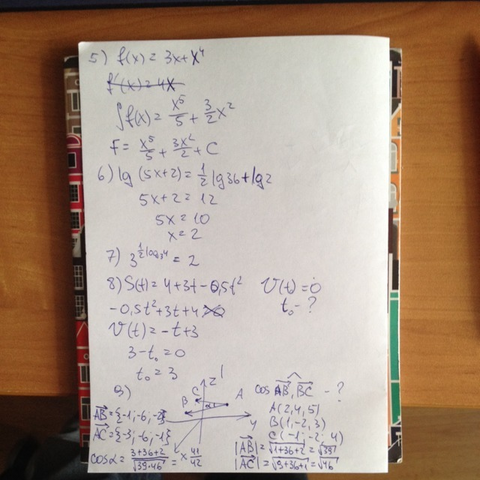 5) f(x) = 3x + x⁴
f'(x) = 4x
∫f(x) = x⁵/5 + 3/2 x²
F = x⁵/5 + 3x²/2 + C
6) lg (5x+2) = 1/2 lg 36 + lg 2
5x+2 = 12
5x = 10
x = 2
7) 3^(1/2 log₃4) = 2
8) S(t) = 4+3t-0,5t² V(t) = 0
-0,5t²+3t+4 t₀ - ?
V(t) = -t+3
3-t₀ = 0
t₀ = 3
9) z cos AB, BC - ?
C B A y x
AB = {-1; -6; -2} A(2, 4, 5)
AC = {-3; -6; -1} B(1, -2, 3)
C(-1; -2; 4)
cos α = (3+36+2)/√(39·46) = 41/42
|AB| = √(1+36+2) = √39
|AC| = √(9+36+1) = √46